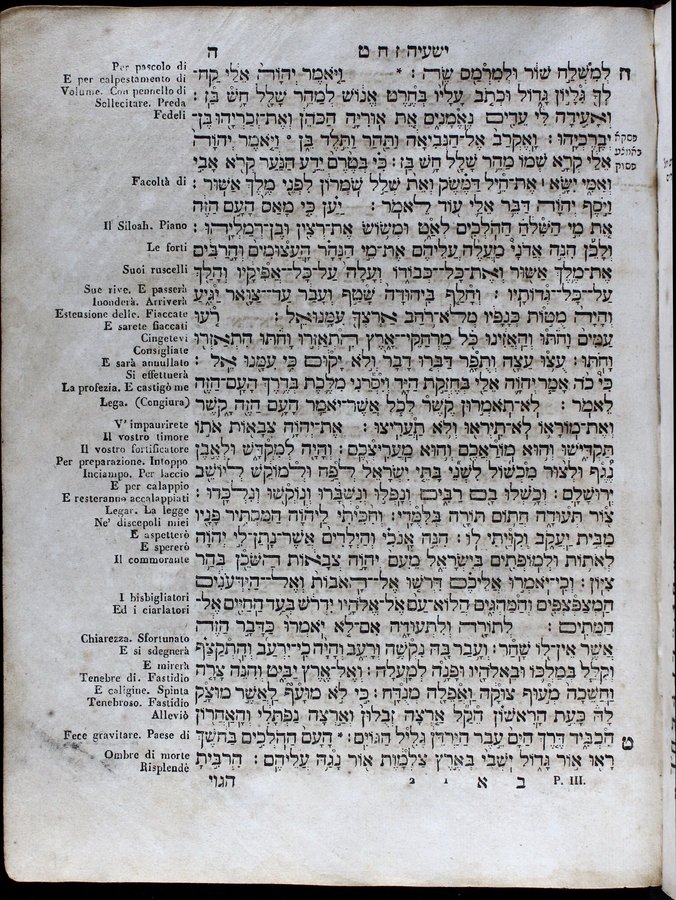 ישעיה ז ח ט
ה
ח לְמִשְׁלַח שׁוֹר וּלְמִרְמַס שֶׂה : * וַיֹּאמֶר יְהוָה אֵלַי קַח־
לְךָ גִּלָּיוֹן גָּדוֹל וּכְתֹב עָלָיו בְּחֶרֶט אֱנוֹשׁ לְמַהֵר שָׁלָל חָשׁ בַּז :
וְאָעִידָה לִּי עֵדִים נֶאֱמָנִים אֵת אוּרִיָּה הַכֹּהֵן וְאֶת־זְכַרְיָהוּ בֶּן־
יְבֶרֶכְיָהוּ : וָאֶקְרַב אֶל־הַנְּבִיאָה וַתַּהַר וַתֵּלֶד בֵּן * וַיֹּאמֶר יְהוָה
אֵלַי קְרָא שְׁמוֹ מַהֵר שָׁלָל חָשׁ בַּז : כִּי בְּטֶרֶם יֵדַע הַנַּעַר קְרֹא אָבִי
וְאִמִּי יִשָּׂא ׀ אֶת־חֵיל דַּמֶּשֶׂק וְאֵת שְׁלַל שֹׁמְרוֹן לִפְנֵי מֶלֶךְ אַשּׁוּר :
וַיֹּסֶף יְהוָה דַּבֵּר אֵלַי עוֹד לֵאמֹר : יַעַן כִּי מָאַס הָעָם הַזֶּה
אֵת מֵי הַשִּׁלֹחַ הַהֹלְכִים לְאַט וּמְשׂוֹשׂ אֶת־רְצִין וּבֶן־רְמַלְיָהוּ :
וְלָכֵן הִנֵּה אֲדֹנָי מַעֲלֶה עֲלֵיהֶם אֶת־מֵי הַנָּהָר הָעֲצוּמִים וְהָרַבִּים
אֶת־מֶלֶךְ אַשּׁוּר וְאֶת־כָּל־כְּבוֹדוֹ וְעָלָה עַל־כָּל־אֲפִיקָיו וְהָלַךְ
עַל־כָּל־גְּדוֹתָיו : וְחָלַף בִּיהוּדָה שָׁטַף וְעָבַר עַד־צַוָּאר יַגִּיעַ
וְהָיָה מֻטּוֹת כְּנָפָיו מְלֹא־רֹחַב אַרְצְךָ עִמָּנוּאֵל : רֹעוּ
עַמִּים וָחֹתּוּ וְהַאֲזִינוּ כֹּל מֶרְחַקֵּי־אָרֶץ הִתְאַזְּרוּ וָחֹתּוּ הִתְאַזְּרוּ
וָחֹתּוּ : עֻצוּ עֵצָה וְתֻפָר דַּבְּרוּ דָבָר וְלֹא יָקוּם כִּי עִמָּנוּ אֵל :
כִּי כֹה אָמַר יְהוָה אֵלַי בְּחֶזְקַת הַיָּד וְיִסְּרֵנִי מִלֶּכֶת בְּדֶרֶךְ הָעָם־הַזֶּה
לֵאמֹר : לֹא־תֹאמְרוּן קֶשֶׁר לְכֹל אֲשֶׁר־יֹאמַר הָעָם הַזֶּה קָשֶׁר
וְאֶת־מוֹרָאוֹ לֹא־תִירְאוּ וְלֹא תַעֲרִיצוּ : אֶת־יְהוָה צְבָאוֹת אֹתוֹ
תַקְדִּישׁוּ וְהוּא מוֹרַאֲכֶם וְהוּא מַעֲרִצְכֶם : וְהָיָה לְמִקְדָּשׁ וּלְאֶבֶן
נֶגֶף וּלְצוּר מִכְשׁוֹל לִשְׁנֵי בָתֵּי יִשְׂרָאֵל לְפַח וּלְמוֹקֵשׁ לְיוֹשֵׁב
יְרוּשָׁלִָם : וְכָשְׁלוּ בָם רַבִּים וְנָפְלוּ וְנִשְׁבָּרוּ וְנוֹקְשׁוּ וְנִלְכָּדוּ :
צוֹר תְּעוּדָה חֲתוֹם תּוֹרָה בְּלִמֻּדָי : וְחִכִּיתִי לַיהוָה הַמַּסְתִּיר פָּנָיו
מִבֵּית יַעֲקֹב וְקִוֵּיתִי לוֹ : הִנֵּה אָנֹכִי וְהַיְלָדִים אֲשֶׁר־נָתַן־לִי יְהוָה
לְאֹתוֹת וּלְמוֹפְתִים בְּיִשְׂרָאֵל מֵעִם יְהוָה צְבָאוֹת הַשֹּׁכֵן בְּהַר
צִיּוֹן : וְכִי־יֹאמְרוּ אֲלֵיכֶם דִּרְשׁוּ אֶל־הָאֹבוֹת וְאֶל־הַיִּדְּעֹנִים
הַמְצַפְצְפִים וְהַמַּהְגִּים הֲלוֹא־עַם אֶל־אֱלֹהָיו יִדְרֹשׁ בְּעַד הַחַיִּים אֶל־
הַמֵּתִים : לְתוֹרָה וְלִתְעוּדָה אִם־לֹא יֹאמְרוּ כַּדָּבָר הַזֶּה
אֲשֶׁר אֵין־לוֹ שָׁחַר : וְעָבַר בָּהּ נִקְשֶׁה וְרָעֵב וְהָיָה כִי־יִרְעַב וְהִתְקַצַּף
וְקִלֵּל בְּמַלְכּוֹ וּבֵאלֹהָיו וּפָנָה לְמָעְלָה : וְאֶל־אֶרֶץ יַבִּיט וְהִנֵּה צָרָה
וַחֲשֵׁכָה מְעוּף צוּקָה וַאֲפֵלָה מְנֻדָּח : כִּי לֹא מוּעָף לַאֲשֶׁר מוּצָק
לָהּ כָּעֵת הָרִאשׁוֹן הֵקַל אַרְצָה זְבֻלוּן וְאַרְצָה נַפְתָּלִי וְהָאַחֲרוֹן
הִכְבִּיד דֶּרֶךְ הַיָּם עֵבֶר הַיַּרְדֵּן גְּלִיל הַגּוֹיִם : * הָעָם הַהֹלְכִים בַּחֹשֶׁךְ ט
רָאוּ אוֹר גָּדוֹל יֹשְׁבֵי בְּאֶרֶץ צַלְמָוֶת אוֹר נָגַהּ עֲלֵיהֶם : הִרְבִּיתָ
הגוי
ב א ו ג
P. III.
פסקא
באמצע
פסוק
Per pascolo di
E per calpestamento di
Volume. Con pennello di
Sollecitare. Preda
Fedeli
Facoltà di
Il Siloah. Piano
Le forti
Suoi ruscelli
Sue rive. E passerà
Inonderà. Arriverà
Estensione delle. Fiaccate
E sarete fiaccati
Cingetevi
Consigliate
E sarà annullato
Si effettuerà
La profezia. E castigò me
Lega. (Congiura)
V' impaurirete
Il vostro timore
Il vostro fortificatore
Per preparazione. Intoppo
Inciampo. Per laccio
E per calappio
E resteranno accalappiati
Legar. La legge
Ne' discepoli miei
E aspetterò
E spererò
Il commorante
I bisbigliatori
Ed i ciarlatori
Chiarezza. Sfortunato
E si sdegnerà
E mirerà
Tenebre di. Fastidio
E caligine. Spinta
Tenebroso. Fastidio
Alleviò
Fece gravitare. Paese di
Ombre di morte
Risplendè